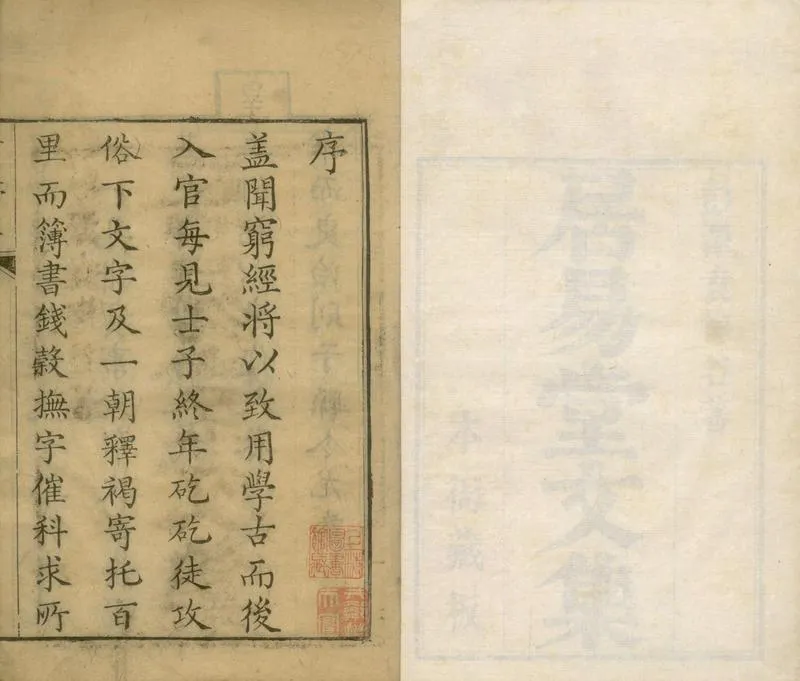 居易堂文集
本衙藏板
序
盖聞窮經將以致用學古而後
入官每見士子終年矻矻徒攻
俗下文字及一朝釋褐寄托百
里而簿書錢穀撫字催科求所